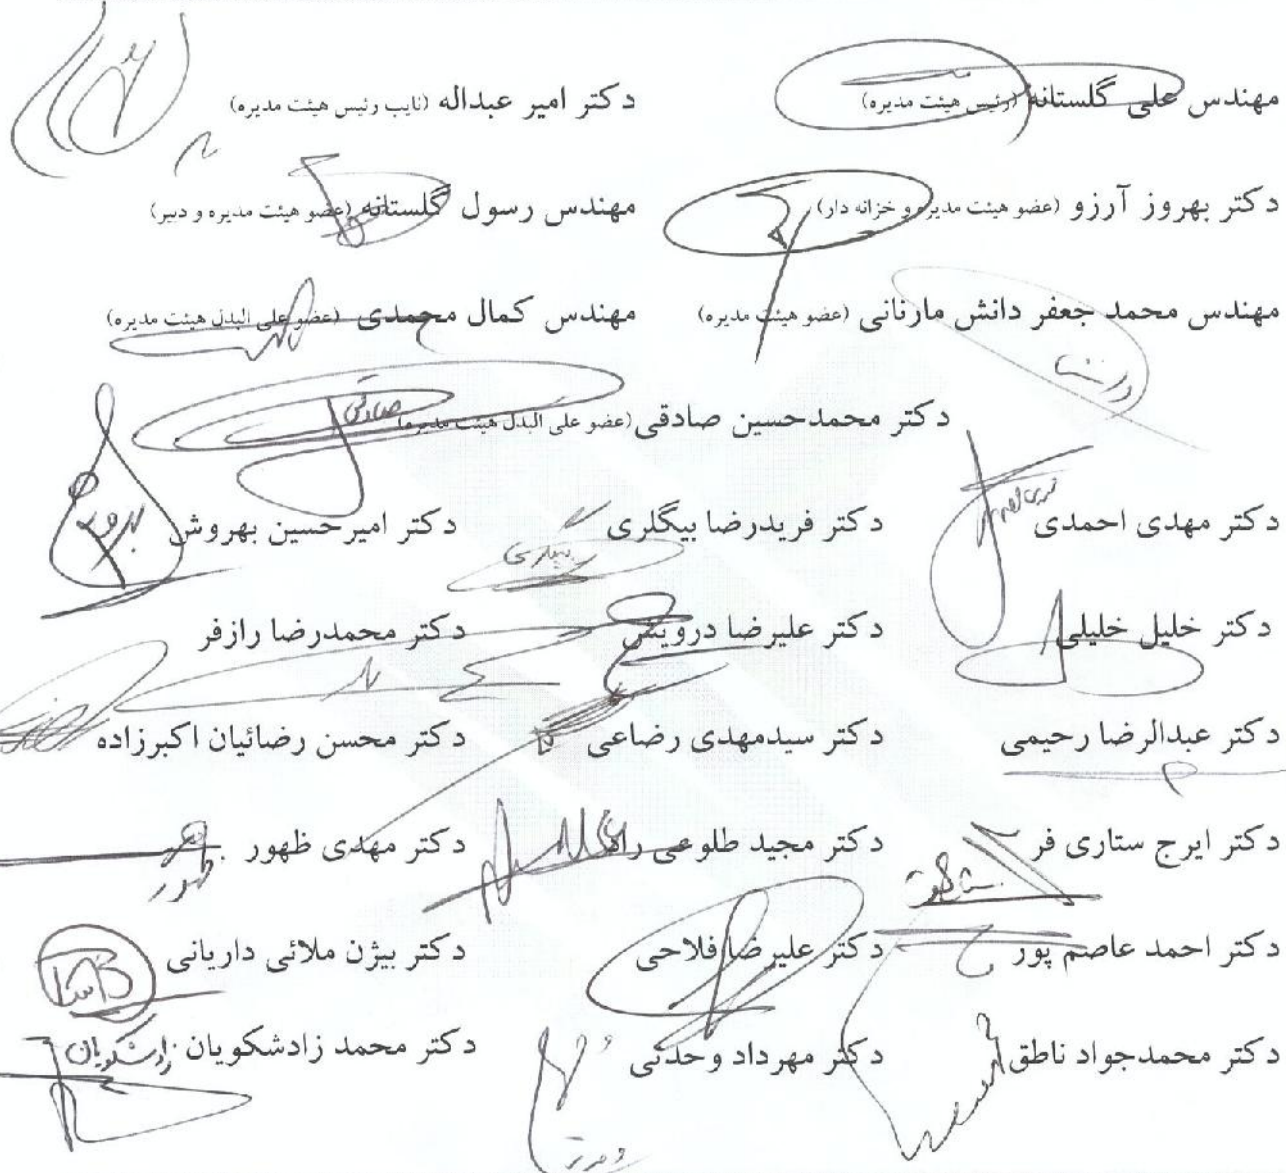 مهندس علی گلستانه (رئیس هیئت مدیره) دکتر امیر عبداله (نایب رئیس هیئت مدیره)
دکتر بهروز آرزو (عضو هیئت مدیره و خزانه دار) مهندس رسول گلستانه (عضو هیئت مدیره و دبیر)
مهندس محمد جعفر دانش مارنانی (عضو هیئت مدیره) مهندس کمال محمدی (عضو علی البدل هیئت مدیره)
دکتر محمدحسین صادقی (عضو علی البدل هیئت مدیره) صادقی
دکتر مهدی احمدی دکتر فریدرضا بیگلری دکتر امیرحسین بهروش
دکتر خلیل خلیلی دکتر علیرضا درویش دکتر محمدرضا رازفر
دکتر عبدالرضا رحیمی دکتر سیدمهدی رضاعی دکتر محسن رضائیان اکبرزاده
دکتر ایرج ستاری فر دکتر مجید طلوعی راد دکتر مهدی ظهور ظهور
دکتر احمد عاصم پور دکتر علیرضا فلاحی دکتر بیژن ملائی داریانی
دکتر محمدجواد ناطق دکتر مهرداد وحدتی دکتر محمد زادشکویان زادشکویان